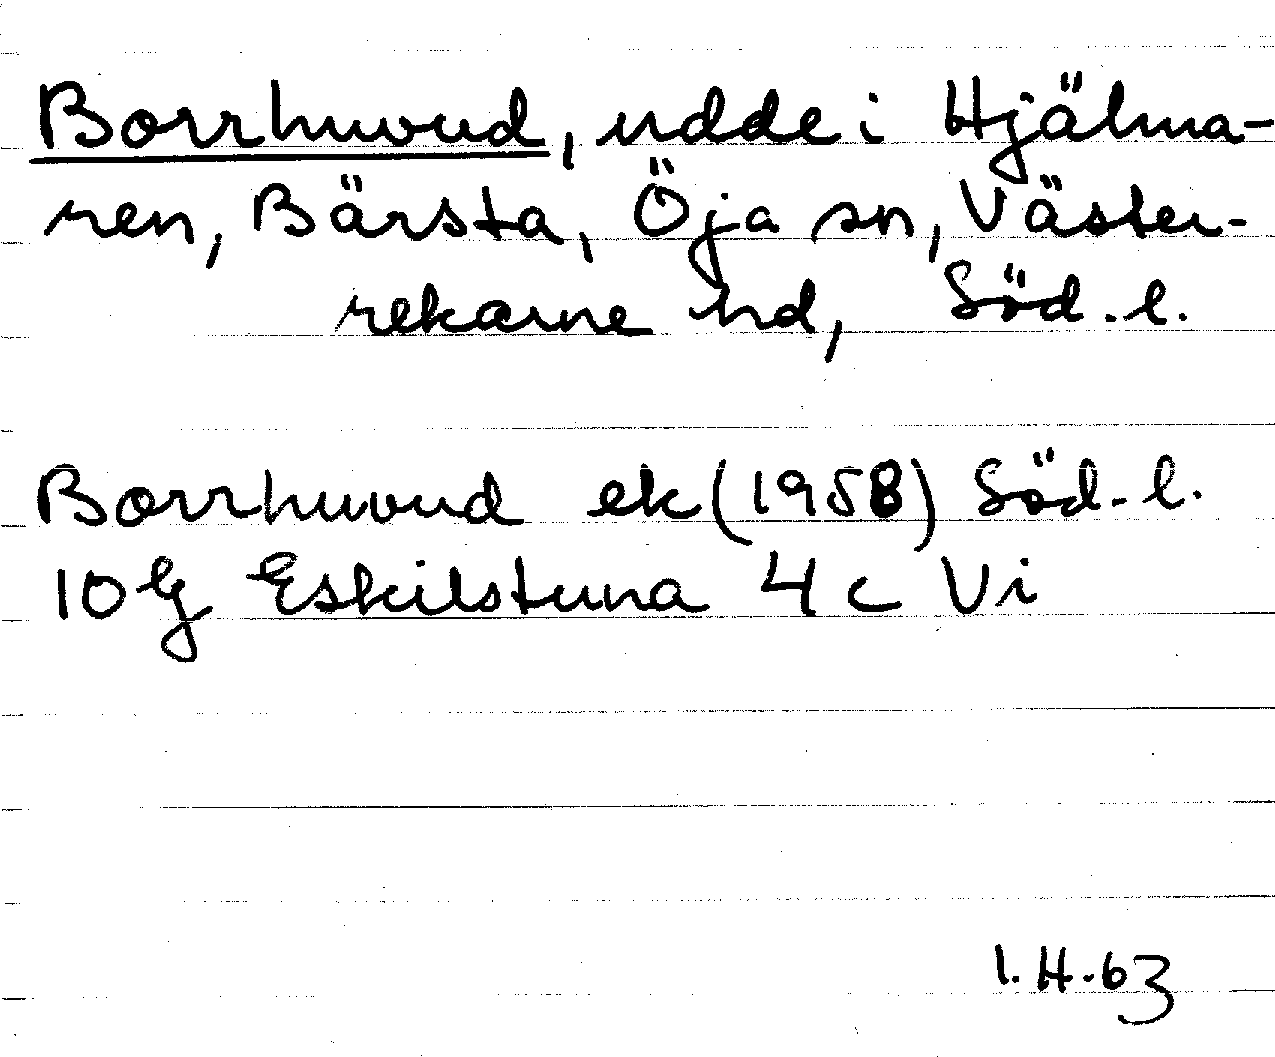 Borrhuvud, udde i Hjälma-
ren, Bärsta, Öja sn, Väster-
rekarne hd, Söd. l.
Borrhuvud ek (1958) Söd. l.
10G Eskilstuna 4 c Vi
I. H. 63